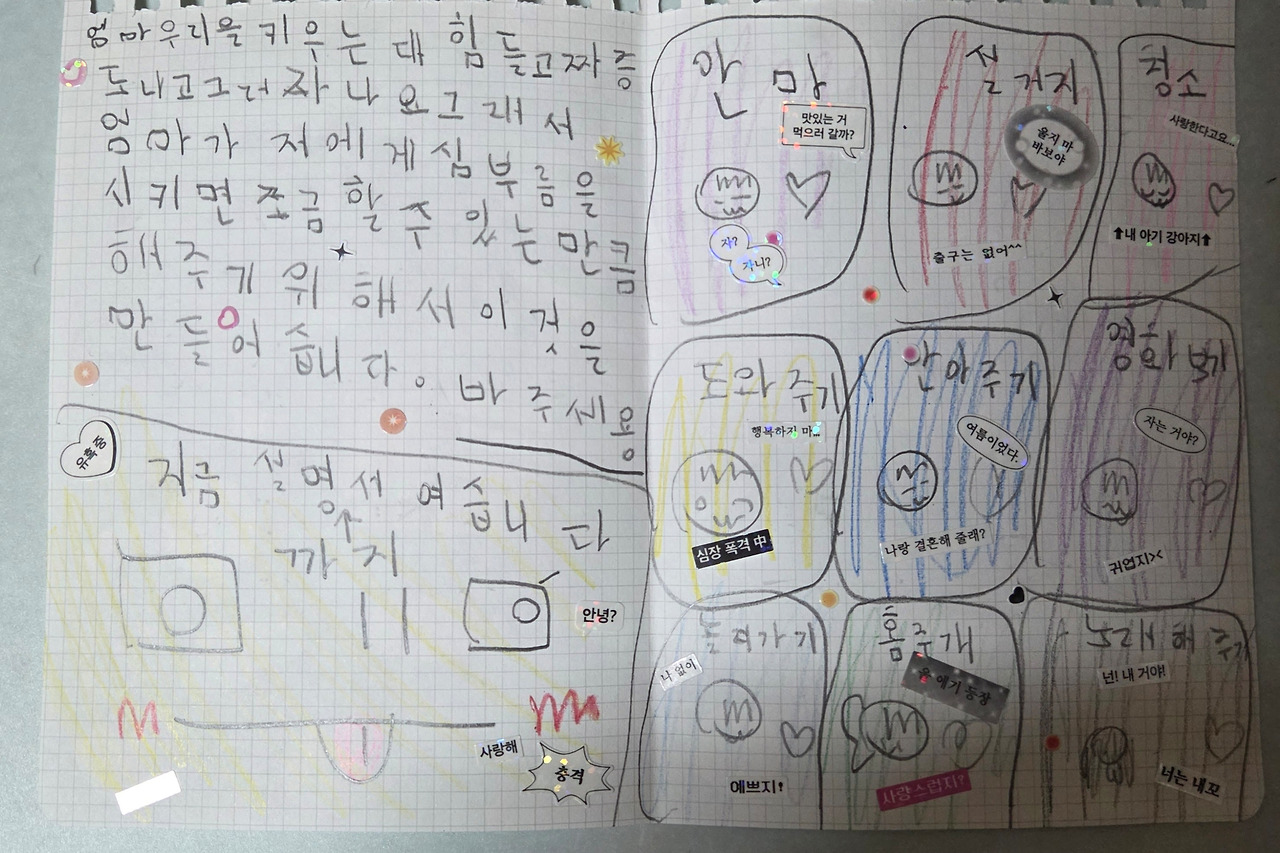 엄마우리을 키우는 대 힘들고짜증
도나고그러차나요그래서
엄마가 저에게심부름을
시키면 쪼금할 수 있는만큼
해주기 위해서이것을
만들어습니다. 바주세용
유혹중
지금 설명서여습니다
까지
안녕?
사랑해
충격
안마
맛있는 거
먹으러 갈까?
자?
자니?
설거지
울지 마
바보야
출구는 없어^^
청소
사랑한다고요...
⬆내 아기 강아지⬆
도와주기
행복하질 마...
심장 폭격 中
안아주기
여름이었다.
나랑 결혼해 줄래?
영화보기
자는 거야?
귀엽지><
놀려가기
나 없이
예쁘지!
홈주개
울 애기 등장
사랑스럽지?
노래해주기
넌! 내 거야!
너는 내꼬